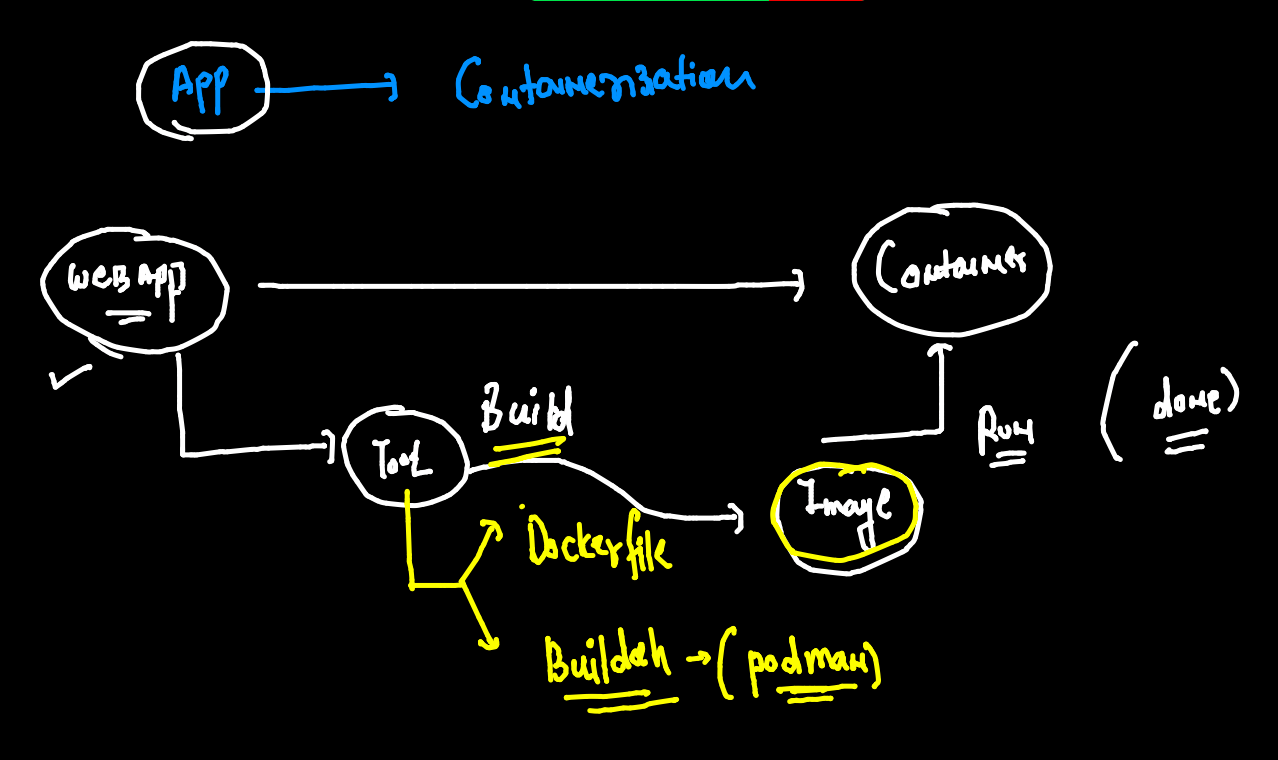 App Containerization
WEB APP
Container
Build
Tool
Run
(done)
Image
Dockerfile
Buildah → (podman)